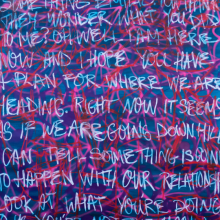 SOMETHING IS
THEY WONDER WHAT YOU DID
TO ME? OH WELL I AM HERE
NOW AND I HOPE YOU HAVE
A PLAN FOR WHERE WE ARE
HEADING. RIGHT NOW IT SEEMS
AS IF WE ARE GOING DOWN HILL
I CAN TELL SOMETHING IS GOING
TO HAPPEN WITH OUR RELATIONSH
LOOK AT WHAT YOU'RE DOING